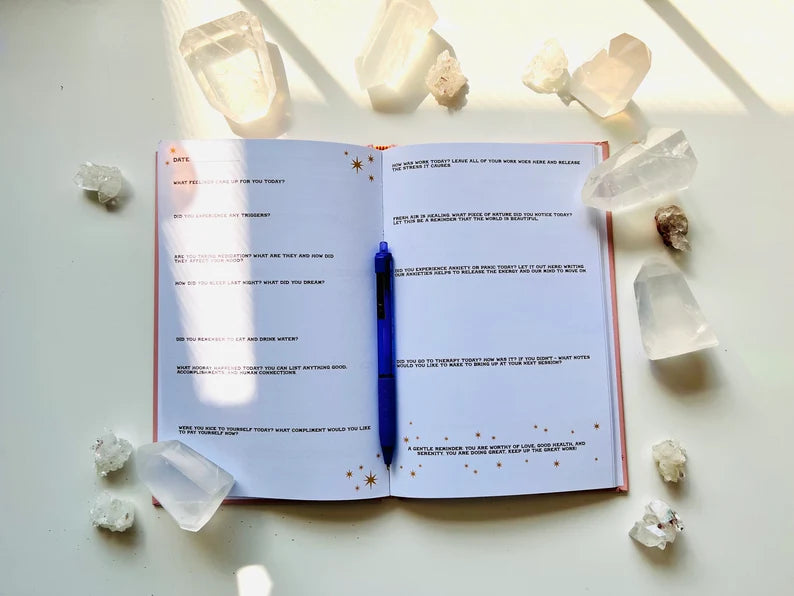 DATE
WHAT FEELINGS CAME UP FOR YOU TODAY?
DID YOU EXPERIENCE ANY TRIGGERS?
ARE YOU TAKING MEDICATION? WHAT ARE THEY AND HOW DID
THEY AFFECT YOUR MOOD?
HOW DID YOU SLEEP LAST NIGHT? WHAT DID YOU DREAM?
DID YOU REMEMBER TO EAT AND DRINK WATER?
WHAT HOORAY HAPPENED TODAY? YOU CAN LIST ANYTHING GOOD,
ACCOMPLISHMENTS, AND HUMAN CONNECTIONS
WERE YOU NICE TO YOURSELF TODAY? WHAT COMPLIMENT WOULD YOU LIKE
TO PAY YOURSELF NOW?
HOW WAS WORK TODAY? LEAVE ALL OF YOUR WORK WOES HERE AND RELEASE
THE STRESS IT CAUSES
FRESH AIR IS HEALING. WHAT PIECE OF NATURE DID YOU NOTICE TODAY?
LET THIS BE A REMINDER THAT THE WORLD IS BEAUTIFUL.
DID YOU EXPERIENCE ANXIETY OR PANIC TODAY? LET IT OUT HERE! WRITING
OUR ANXIETIES HELPS TO RELEASE THE ENERGY AND OUR MIND TO MOVE ON
DID YOU GO TO THERAPY TODAY? HOW WAS IT? IF YOU DIDN'T - WHAT NOTES
WOULD YOU LIKE TO MAKE TO BRING UP AT YOUR NEXT SESSION?
A GENTLE REMINDER: YOU ARE WORTHY OF LOVE, GOOD HEALTH, AND
SERENITY. YOU ARE DOING GREAT. KEEP UP THE GREAT WORK!